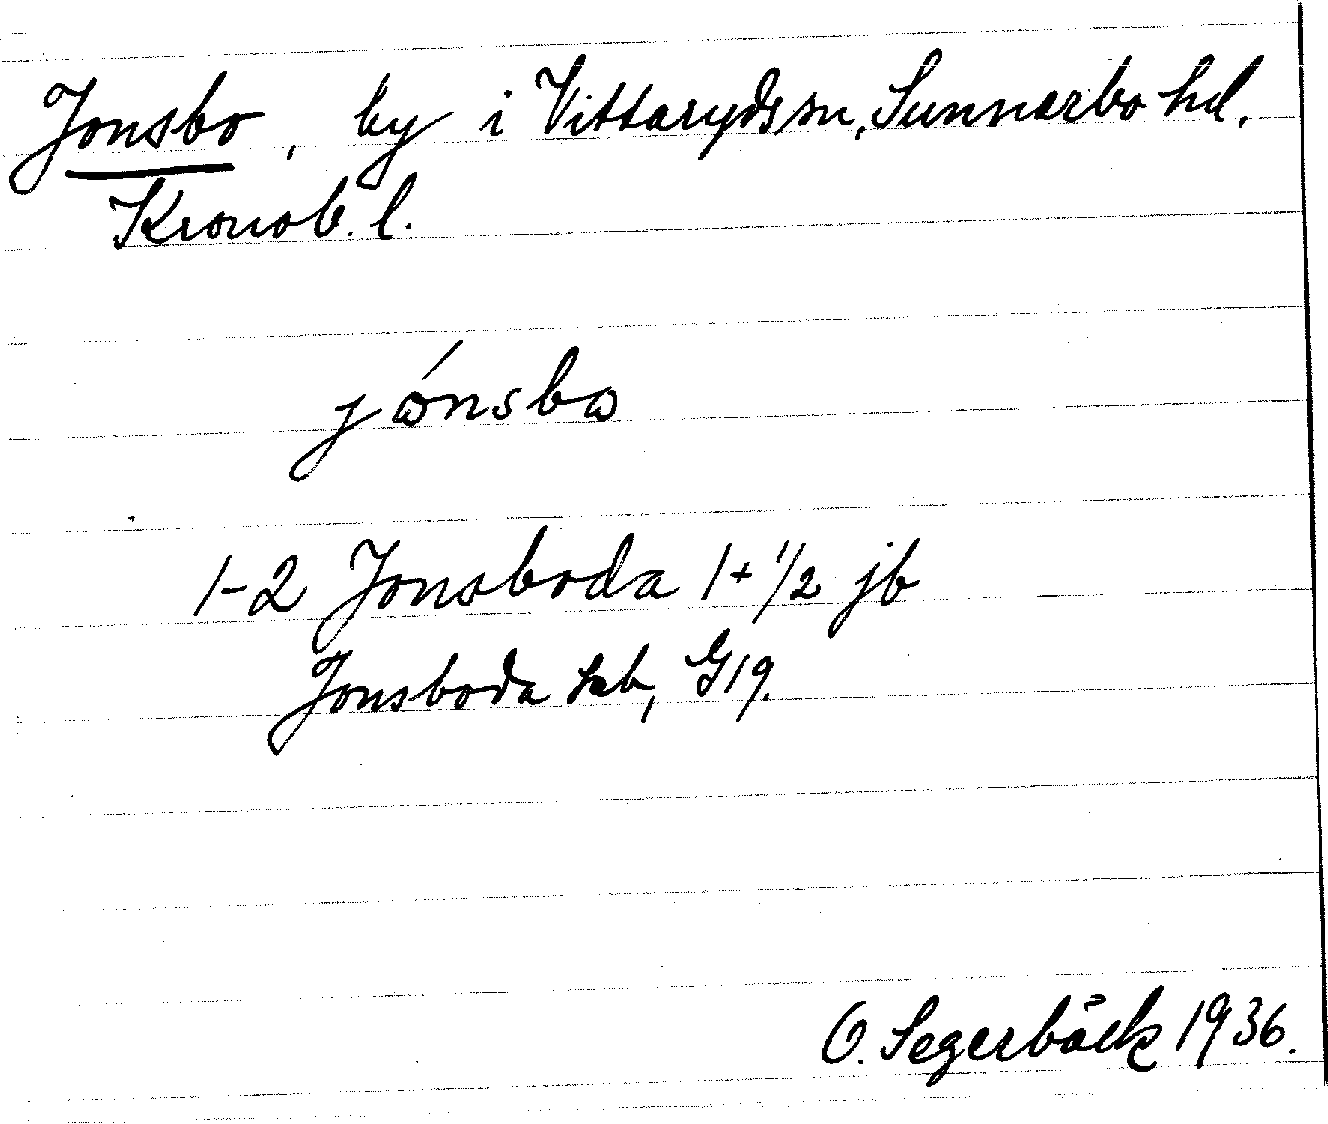 Jonsbo, by i Vittaryds sn, Sunnerbo hd.
Kronob. l.
jónsbo
1-2 Jonsboda 1+1/2 jb
Jonsboda kab, G19.
O. Segerbäck 1936.